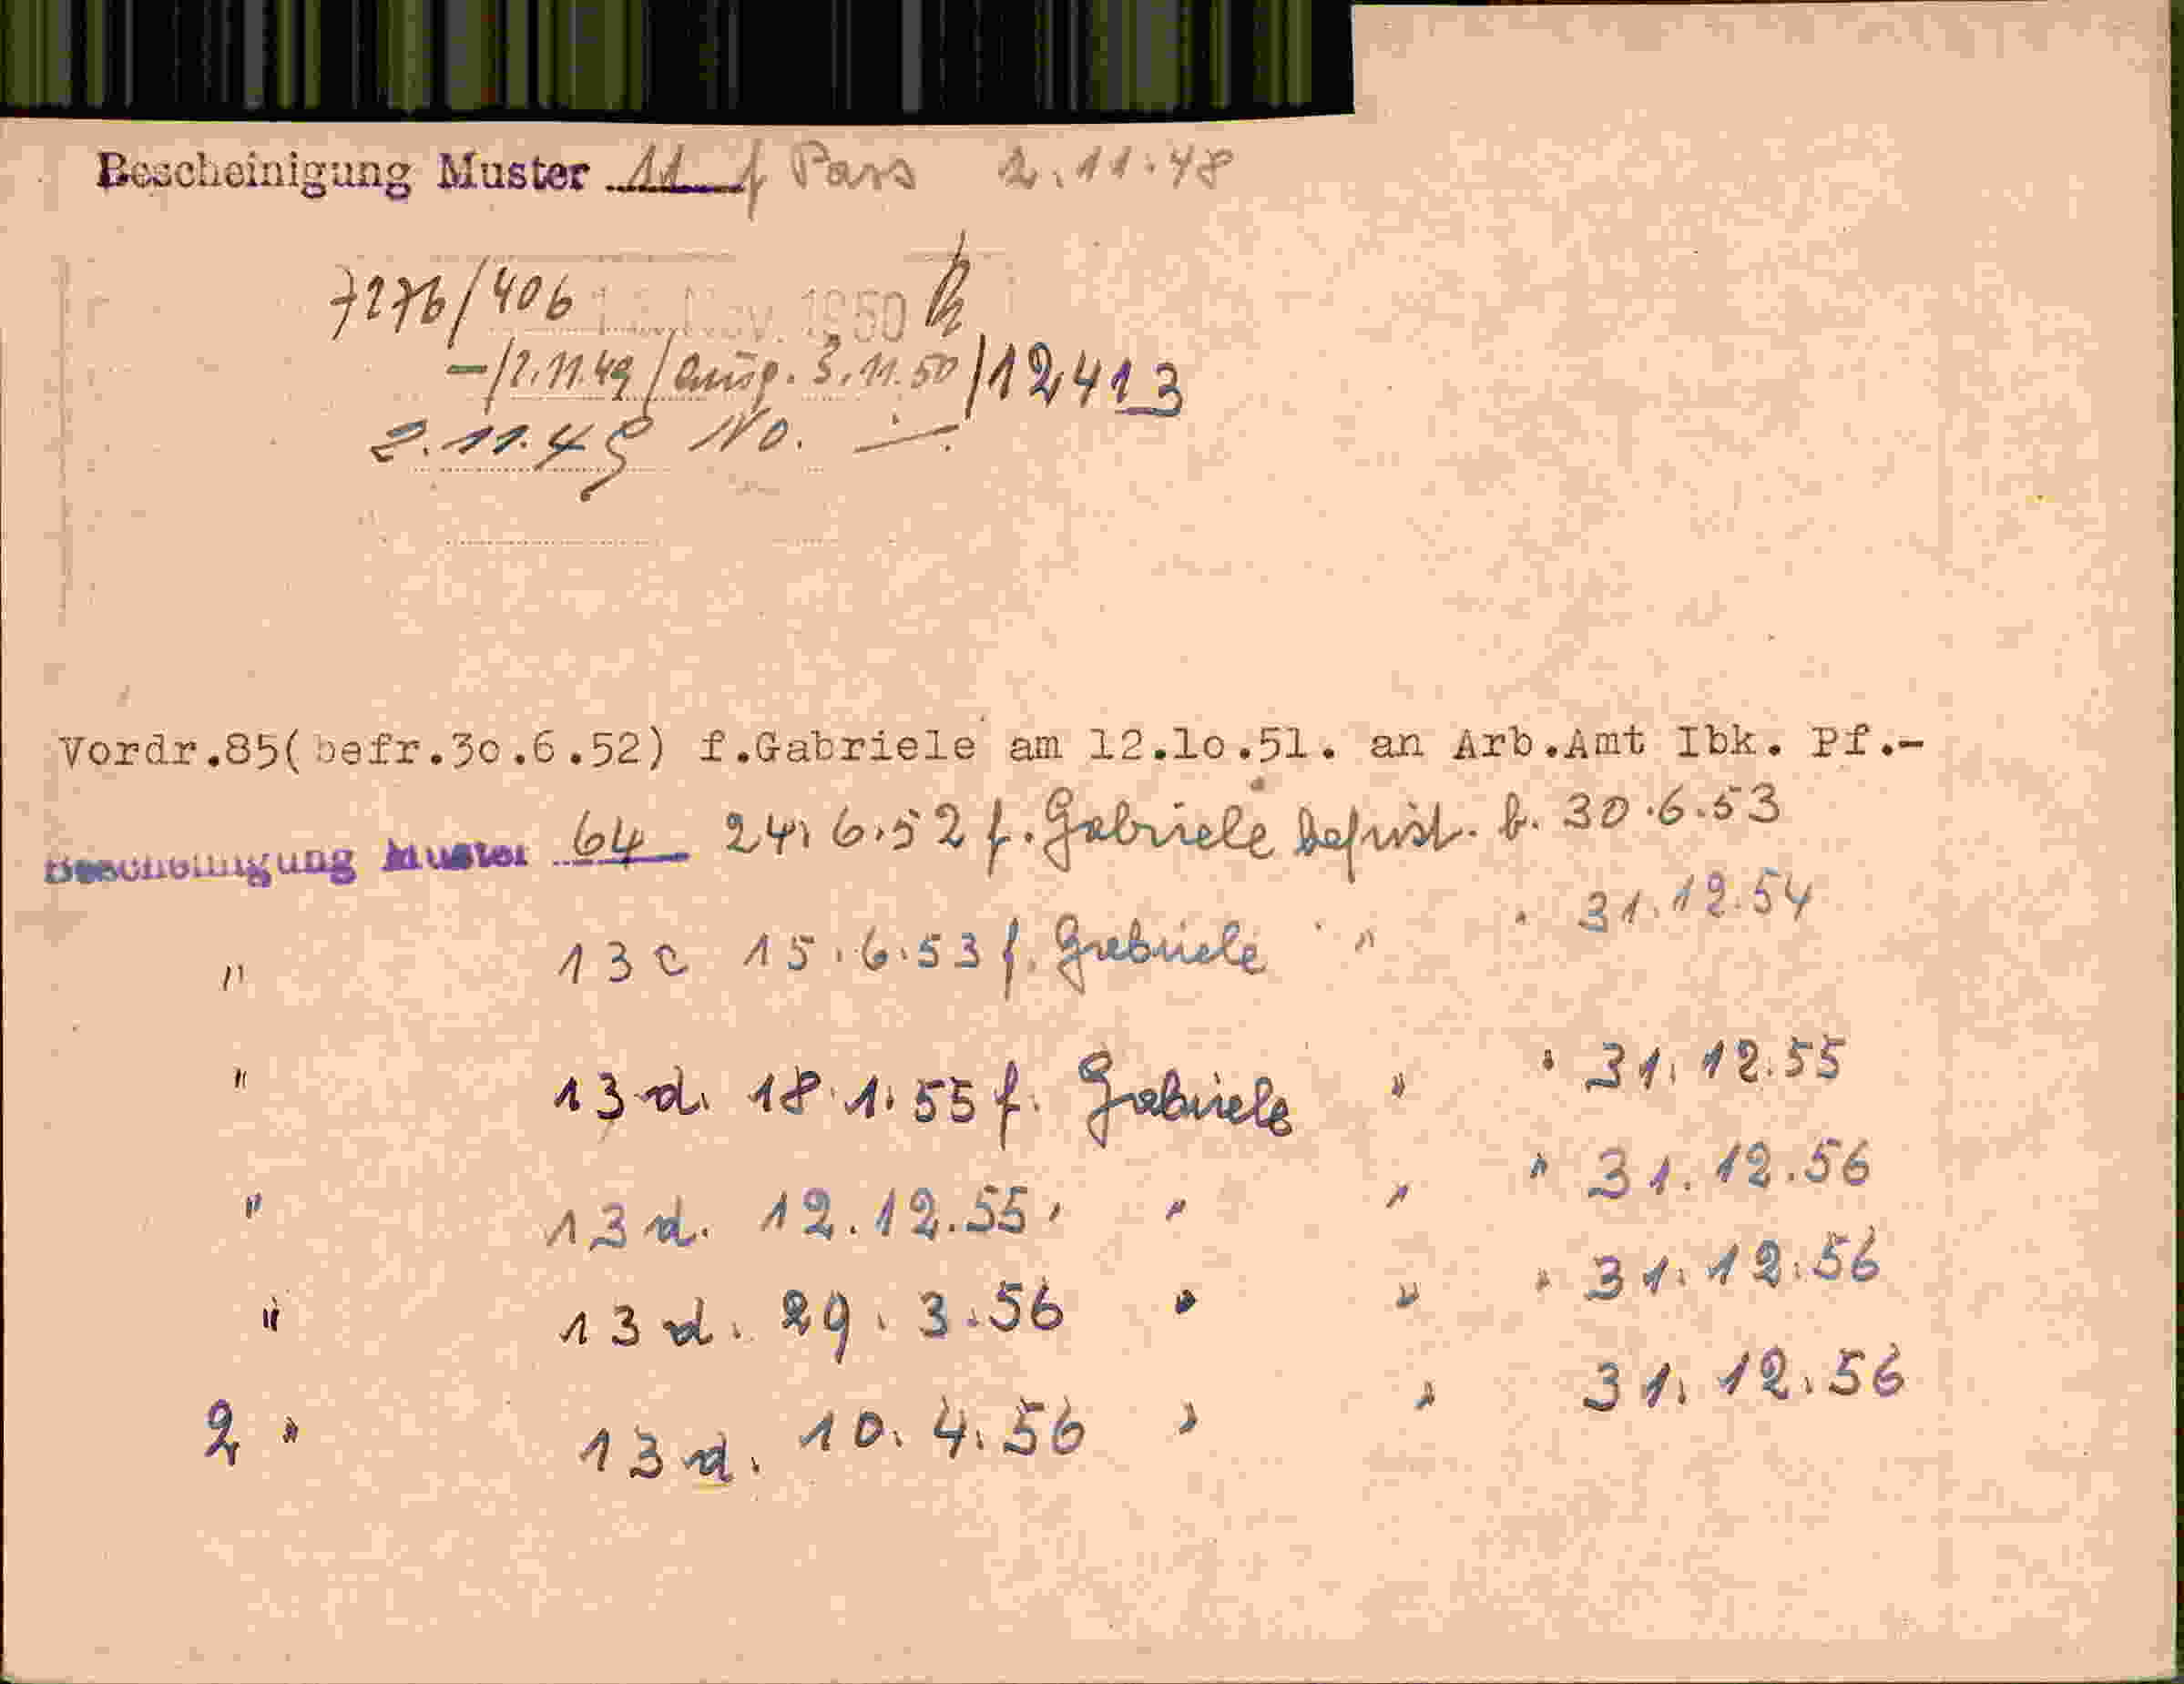 Bescheinigung Muster 11 f Pass 2.11.48
7276/406 Nov. 1950
-/2.11.49/ausg. 3.11.50/12413
2.11.49 No. —.
Vordr.85(befr.30.6.52) f.Gabriele am 12.10.51. an Arb.Amt Ibk. Pf.-
Bescheinigung Muster 64 24.6.52 f. Gabriele befrist. b. 30.6.53
" 13c 15.6.53 f. Gabriele " " 31.12.54
" 13d. 18.1.55 f. Gabriele " " 31.12.55
" 13d. 12.12.55 " " " " 31.12.56
" 13d. 29.3.56 " " " 31.12.56
2 " 13d. 10.4.56 " " 31.12.56